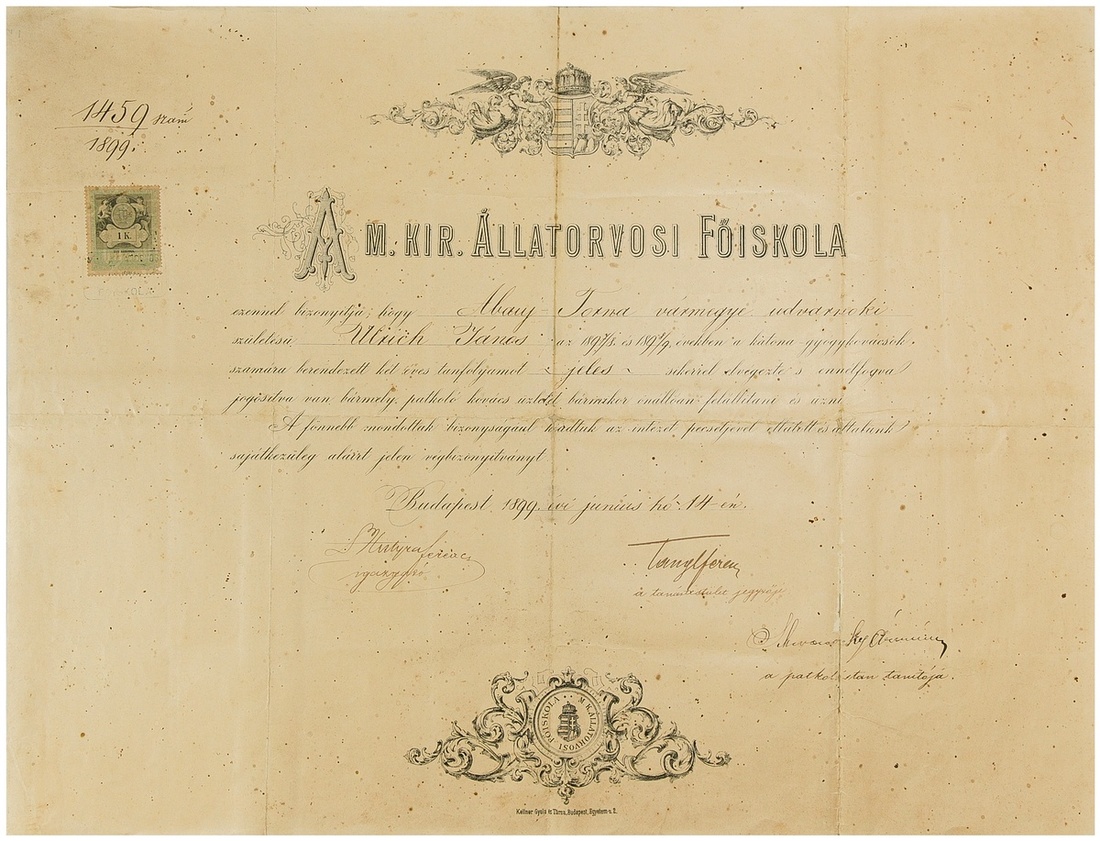 1459 szám
1899.
1 K.
A M. KIR. ÁLLATORVOSI FŐISKOLA
ezennel bizonyitja, hogy Abauj-Torna vármegyei udvarnoki
születésü Ulrich János az 1897/8. és 1898/9. években a katona-gyógykovácsok
számára berendezett két éves tanfolyamot jeles sikerrel elvégezte s ennélfogva
jogosítva van, bármely patkoló kovács üzletet bármikor önállóan felállítani és üzni.
A fönnebb mondottak bizonyságául kiadtuk az intézet pecsétjével ellátott és általunk
sajátkezüleg aláirt jelen végbizonyitványt
Budapest, 1899. évi junius hó 14-én.
Hutyra Ferenc
igazgató
Tangl Ferenc
a tanártestület jegyzője
a patkolástan tanitója.
M. K. ÁLLATORVOSI FŐISKOLA
Kellner Gyula és Társa, Budapest, Egyetem-u. 2.